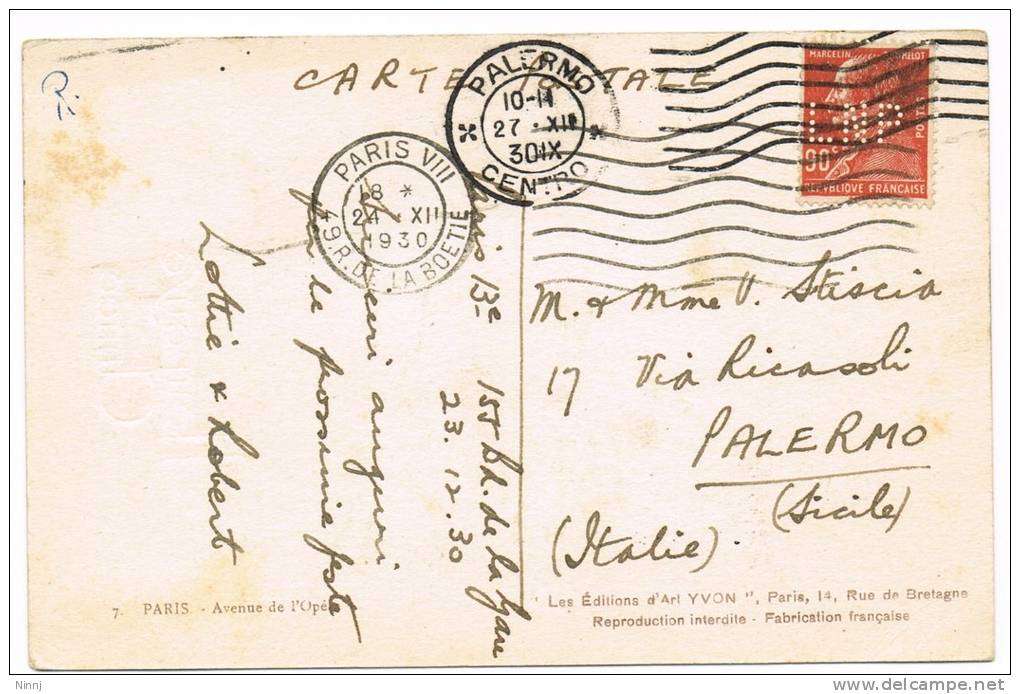 CARTE POSTALE
PALERMO
10-11
27 · XII
30 IX
CENTRO
PARIS VIII
18 *
24 · XII
1930
49. R. DE LA BOETIE
MARCELIN
POSTES
90c
L.NP
REPVBLIQVE FRANÇAISE
Paris 13e
155 Bd. de la Gare
23.12.30
auguri
per le prossime feste
Lottie & Robert
M. & Mme V. Stiscia
17 Via Ricasoli
PALERMO
(Sicile)
(Italie)
7. PARIS - Avenue de l'Opéra
" Les Éditions d'Art YVON ", Paris, 14, Rue de Bretagne
Reproduction interdite - Fabrication française
Ninnj
delcampe.net